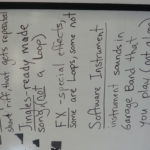 short riff, that gets repeated
Tracks-ready made
song (not a Loop)
FX - special effects,
some are loops, some not
Software Instrument
instrument sounds in
Garage Band that
you play (not a loop)